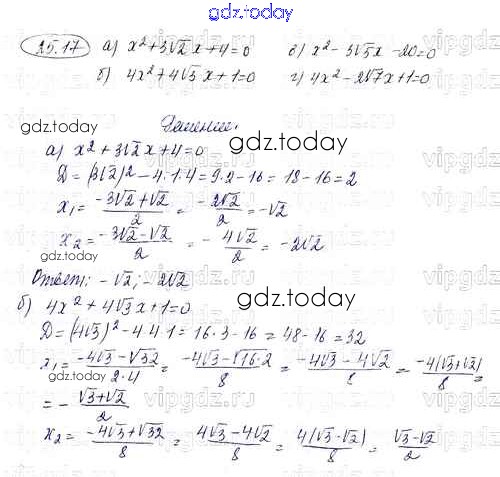 gdz.today
25.17 а) x² + 3√2 x + 4 = 0 в) x² - 3√5 x - 20 = 0
б) 4x² + 4√3 x + 1 = 0 г) 4x² - 2√7 x + 1 = 0
gdz.today
Решение.
а) x² + 3√2 x + 4 = 0
gdz.today
D = (3√2)² - 4·1·4 = 9·2 - 16 = 18 - 16 = 2
x₁ = (-3√2 + √2)/2 = -2√2/2 = -√2
x₂ = (-3√2 - √2)/2 = -4√2/2 = -2√2
gdz.today
Ответ: -√2; -2√2
б) 4x² + 4√3 x + 1 = 0
gdz.today
D = (4√3)² - 4·4·1 = 16·3 - 16 = 48 - 16 = 32
x₁ = (-4√3 - √32)/(2·4) = (-4√3 - √16·2)/8 = (-4√3 - 4√2)/8 = -4(√3 + √2)/8 =
gdz.today
= -(√3 + √2)/2
x₂ = (-4√3 + √32)/8 = (4√3 - 4√2)/8 = 4(√3 - √2)/8 = (√3 - √2)/2
gdz.today